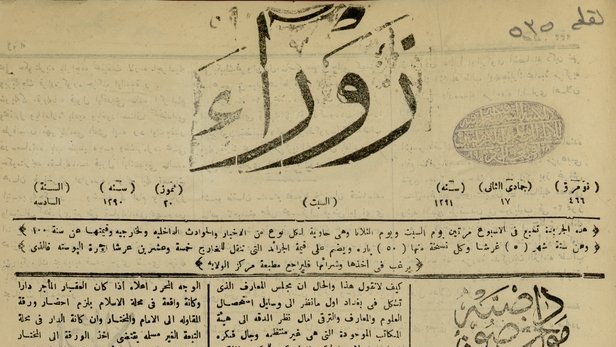 زوراء
نومرو ٤٦٦
جمادى الثانى ١٧
سنه ١٢٩١
السبت
تموز ٢٠
سنه ١٢٩٠
السنة السادسه
هذه الجريدة تطبع فى الاسبوع مرتين يوم السبت ويوم الثلاثا وهى حاوية لكل نوع من الاخبار والحوادث الداخليه والخارجيه وقيمتها عن سنة ١٠٠
وعن ستة شهر (٥٠) غرشا وكل نسخة منها (٥٠) باره ويضم على قيمة الجرائد التى تنقل للخارج خمسة وعشرين غرشا اجرة البوسته فالذى
يرغب فى أخذها وشرائها فليراجع مطبعة مركز الولايه
داخليه
كيف لانقول هذا والحال ان مجلس المعارف الذى
تشكل فى بغداد اول مانظر الى وسايل استحصال
العلوم والمعارف والترقى امال نظر الدقه الى هيئة
المكاتب الموجودة التى هى غير منتظمه وبدل فكره
الوجه المحرر اعلاه اذا كان العقار المأجر دارا
وكانة واقعة فى محلة الاسلام يلزم احضار ورقة
المقاوله الى الامام والمختار وان كانة الدار فى محلة
التبعة الغير مسلمه يقتضى اخذ الورقة الى المختار